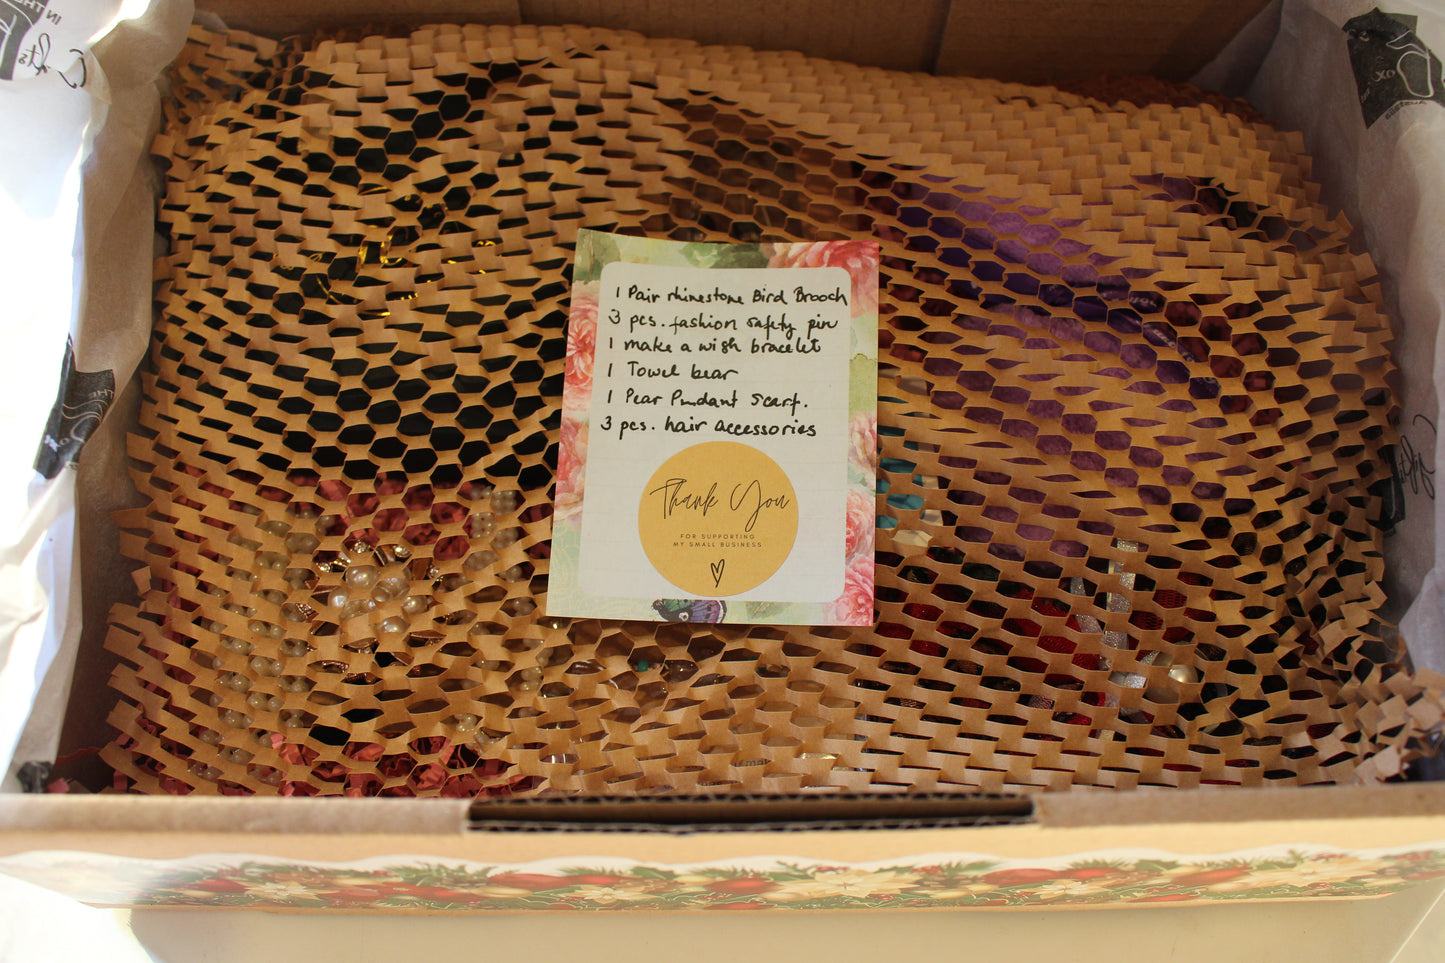 1 Pair rhinestone Bird Brooch
3 pcs. fashion safety pin
1 make a wish bracelet
1 Towel bear
1 Pear Pendant Scarf.
3 pcs. hair accessories
Thank You
FOR SUPPORTING
MY SMALL BUSINESS